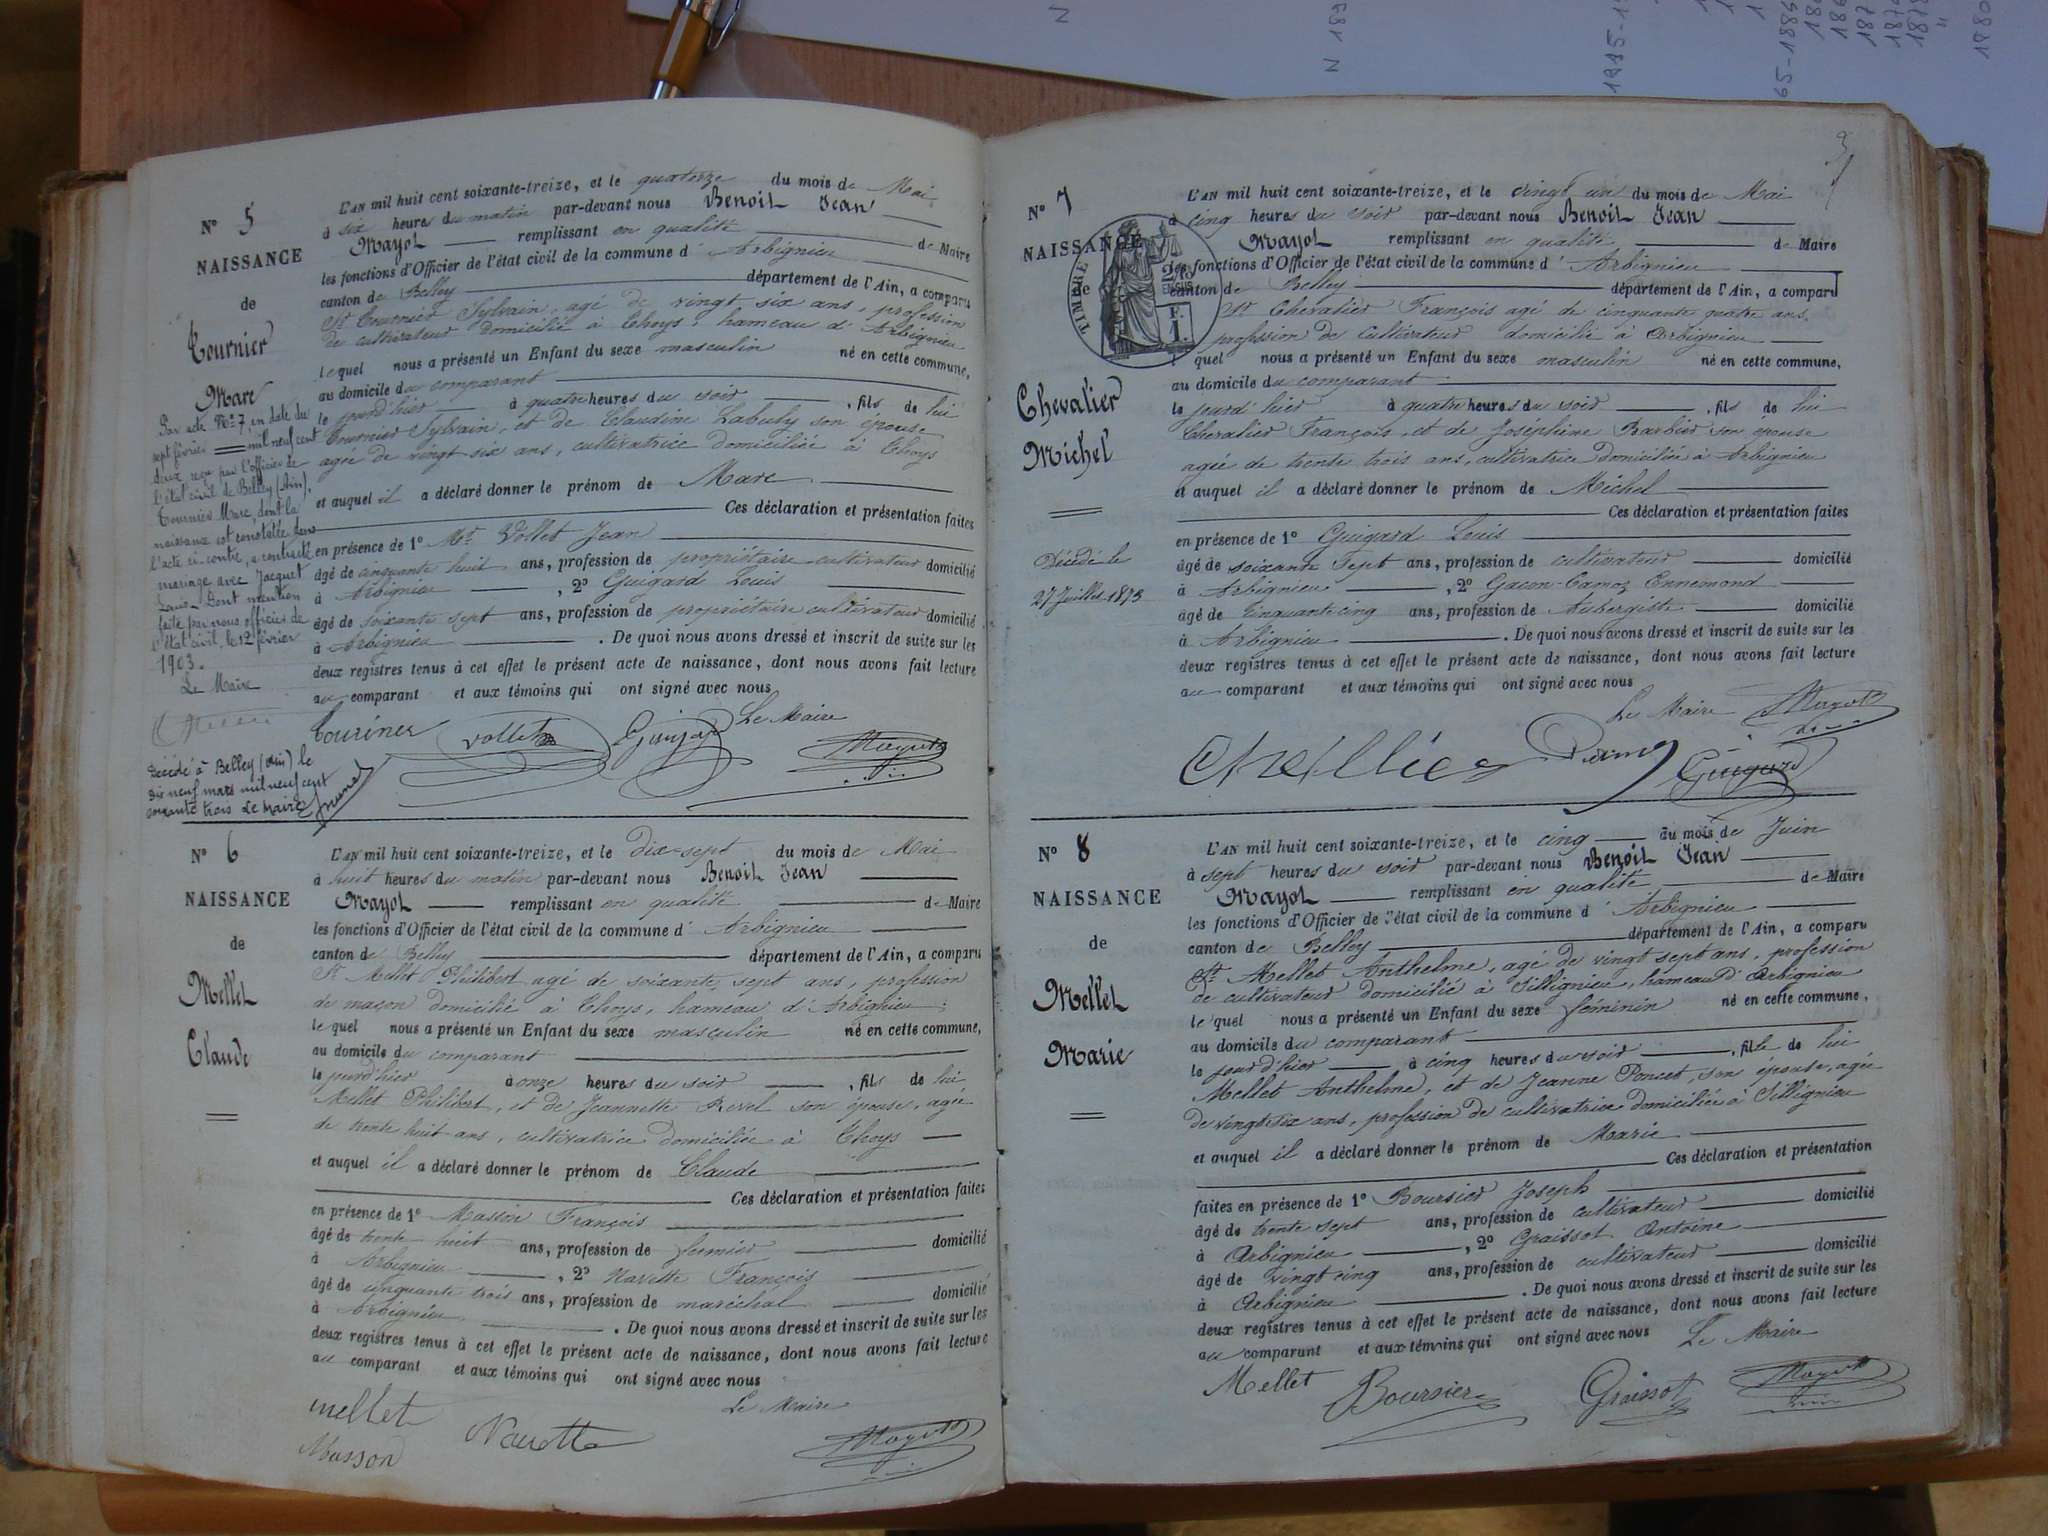 N° 5
NAISSANCE
de
Tournier
Marc
Par acte N° 7, en date du
sept février mil neuf cent
deux reçu par l'officier de
l'état civil de Belley (Ain),
Tournier Marc, dont la
naissance est constatée dans
l'acte ci-contre, a contracté
mariage avec Jacquet
Louise. Dont mention
faite par nous officier de
l'état civil, le 12 février
1903.
Le Maire
Décédé à Belley (Ain) le
dix neuf mars mil neuf cent
soixante trois Le Maire
L'AN mil huit cent soixante-treize, et le quatorze du mois de Mai
à six heures du matin par-devant nous Benoit Jean
Mayot remplissant en qualité de Maire
les fonctions d'Officier de l'état civil de la commune d'Arbignieu
canton de Belley département de l'Ain, a comparu
Sr. Tournier Sylvain, agé de vingt six ans, profession
de cultivateur domicilié à Thoys, hameau d'Arbignieu
lequel nous a présenté un Enfant du sexe masculin né en cette commune,
au domicile du comparant
le jourd'hier à quatre heures du soir, fils de lui
Tournier Sylvain, et de Claudine Labully son épouse
agée de vingt six ans, cultivatrice domiciliée à Thoys
et auquel il a déclaré donner le prénom de Marc
Ces déclaration et présentation faites
en présence de 1° Mr. Vollet Jean
âgé de cinquante huit ans, profession de propriétaire cultivateur domicilié
à Arbignieu, 2° Guigard Louis
âgé de soixante sept ans, profession de propriétaire cultivateur domicilié
à Arbignieu. De quoi nous avons dressé et inscrit de suite sur les
deux registres tenus à cet effet le présent acte de naissance, dont nous avons fait lecture
au comparant et aux témoins qui ont signé avec nous
Le Maire
Touriner Vollet Guigard Mayot
N° 6
NAISSANCE
de
Mellet
Claude
L'AN mil huit cent soixante-treize, et le dix-sept du mois de Mai
à huit heures du matin par-devant nous Benoit Jean
Mayot remplissant en qualité de Maire
les fonctions d'Officier de l'état civil de la commune d'Arbignieu
canton de Belley département de l'Ain, a comparu
Sr. Mellet Philibert agé de soixante sept ans, profession
de maçon domicilié à Thoys, hameau d'Arbignieu;
lequel nous a présenté un Enfant du sexe masculin né en cette commune,
au domicile du comparant
le jourd'hier à onze heures du soir, fils de lui
Mellet Philibert, et de Jeannette Revel son épouse, agée
de trente huit ans, cultivatrice domiciliée à Thoys
et auquel il a déclaré donner le prénom de Claude
Ces déclaration et présentation faites
en présence de 1° Masson François
âgé de trente huit ans, profession de fermier domicilié
à Arbignieu, 2° Navette François
âgé de cinquante trois ans, profession de maréchal domicilié
à Arbignieu. De quoi nous avons dressé et inscrit de suite sur les
deux registres tenus à cet effet le présent acte de naissance, dont nous avons fait lecture
au comparant et aux témoins qui ont signé avec nous
Le Maire
mellet Navette Mayot
Masson
N° 7
NAISSANCE
de
TIMBRE
Chevalier
Michel
Décédé le
27 Juillet 1873
L'AN mil huit cent soixante-treize, et le vingt un du mois de Mai
à cinq heures du soir par-devant nous Benoit Jean
Mayot remplissant en qualité de Maire
les fonctions d'Officier de l'état civil de la commune d'Arbignieu
canton de Belley département de l'Ain, a comparu
Sr. Chevalier François agé de cinquante quatre ans,
profession de Cultivateur domicilié à Arbignieu
quel nous a présenté un Enfant du sexe masculin né en cette commune,
au domicile du comparant
le jourd'hier à quatre heures du soir, fils de lui
Chevalier François, et de Joséphine Barbier son épouse
agée de trente trois ans, cultivatrice domiciliée à Arbignieu
et auquel il a déclaré donner le prénom de Michel
Ces déclaration et présentation faites
en présence de 1° Guigard Louis
âgé de soixante Sept ans, profession de cultivateur domicilié
à Arbignieu, 2° Gacon-Camoz Ennemond
âgé de Cinquante cinq ans, profession de Aubergiste domicilié
à Arbignieu. De quoi nous avons dressé et inscrit de suite sur les
deux registres tenus à cet effet le présent acte de naissance, dont nous avons fait lecture
au comparant et aux témoins qui ont signé avec nous
Le Maire Mayot
Guigard
N° 8
NAISSANCE
de
Mellet
Marie
L'AN mil huit cent soixante-treize, et le cinq du mois de Juin
à sept heures du soir par-devant nous Benoit Jean
Mayot remplissant en qualité de Maire
les fonctions d'Officier de l'état civil de la commune d'Arbignieu
canton de Belley département de l'Ain, a comparu
Sr. Mellet Anthelme, agé de vingt sept ans, profession
de cultivateur domicilié à Sillignieu, hameau d'Arbignieu
lequel nous a présenté un Enfant du sexe féminin né en cette commune,
au domicile du comparant
le jourd'hier à cinq heures du soir, fille de lui
Mellet Anthelme, et de Jeanne Poncet, son épouse, agée
de vingt-six ans, profession de cultivatrice domiciliée à Sillignieu
et auquel il a déclaré donner le prénom de Marie
Ces déclaration et présentation
faites en présence de 1° Boursier Joseph
âgé de trente sept ans, profession de cultivateur domicilié
à Arbignieu, 2° Graissot Antoine
âgé de vingt cinq ans, profession de cultivateur domicilié
à Arbignieu. De quoi nous avons dressé et inscrit de suite sur les
deux registres tenus à cet effet le présent acte de naissance, dont nous avons fait lecture
au comparant et aux témoins qui ont signé avec nous Le Maire
Mellet Boursier Graissot Mayot